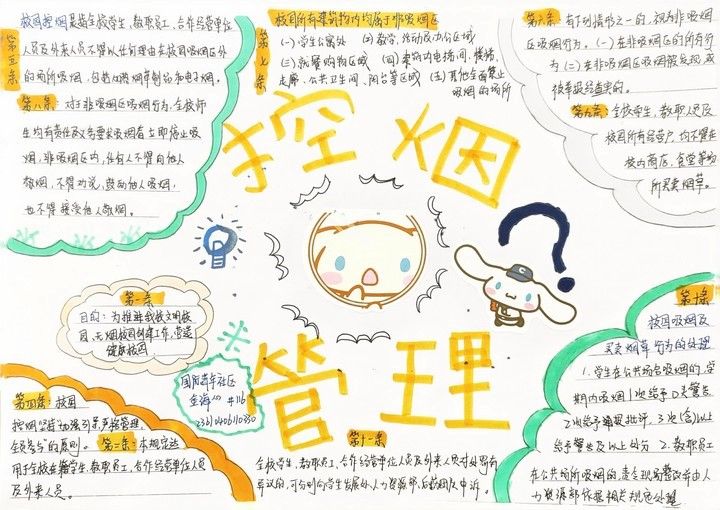 第五条
校园控烟是指全校学生、教职员工、合作经营单位
人员及外来人员不得以任何理由在校园吸烟区外
的场所吸烟,包括点燃烟草制品和电子烟。
第八条:对于非吸烟区吸烟行为,全校师
生均有责任及义务要求吸烟者立即停止吸
烟,非吸烟区内,任何人不得向他人
敬烟,不得劝说、鼓动他人吸烟,
也不得接受他人敬烟。
第七条
校园所有建筑物内均属于非吸烟区
(一)学生公寓 (二)教学、活动及办公区域
(三)就餐购物区域 (四)建筑内电梯间、楼梯、
走廊、公共卫生间、阳台等区域 (五)其他全面禁止
吸烟的场所
第六条:有下列情形之一的,视为非吸烟
区吸烟行为。(一)在非吸烟区的所有行
为(二)在非吸烟区吸烟被发现或
被举报经查实的。
第九条:全校学生、教职人员及
校园所有经营户均不得在
校内商店、食堂等场
所买卖烟草。
控烟
管理
第一条
目的:为推进我校文明校
园、无烟校园创建工作,营造
健康校园
第四条:校园
全员参与"的原则。第二条:本规定适
用于全校在籍学生、教职员工、合作经营单位人员
及外来人员。
第十一条
全校学生、教职员工、合作经营单位人员及外来人员对处罚有
异议的,可分别向学生发展处、人力资源部、后勤部反申诉。
第十条
校园吸烟及
买卖烟草行为的处理
1.学生在公共场合吸烟的,学
期内吸烟1次给予口头警告
2次给予通报批评,3次(含)以上
给予警告及以上处分 2.教职员工
在公共场所吸烟的,责令现场整改并由人
力资源部依据相关规定处理